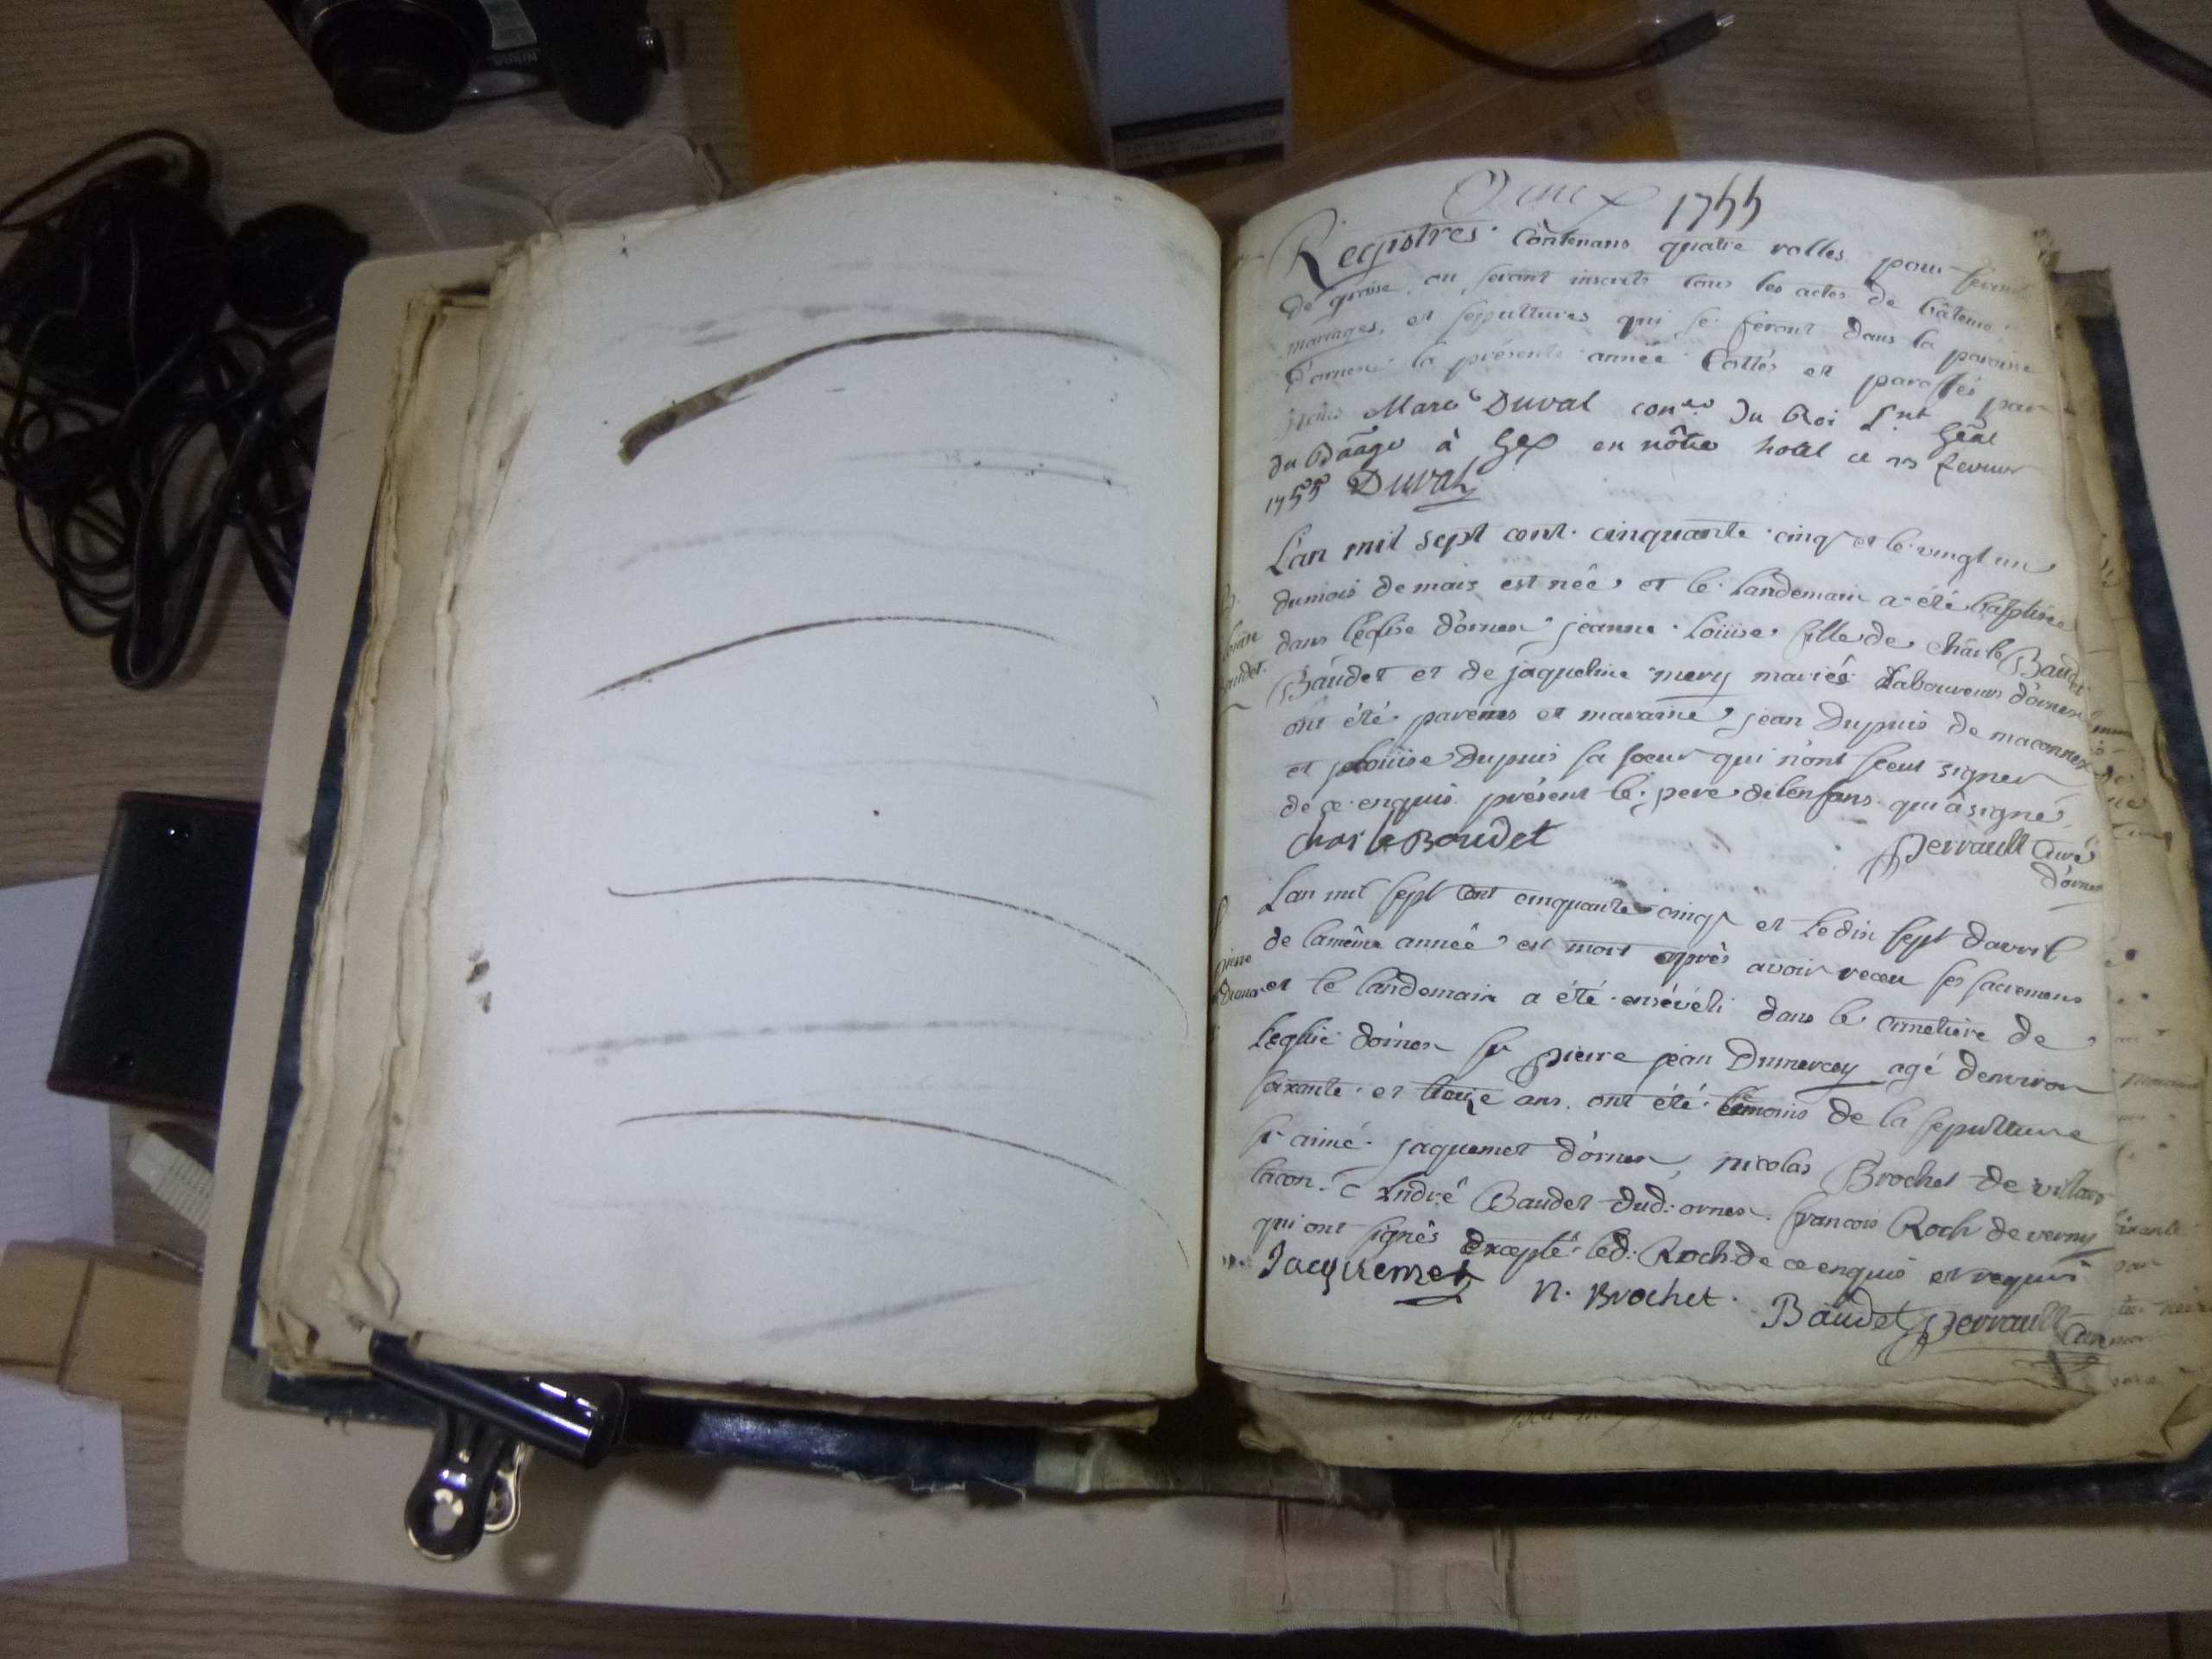 Ornex 1755
Registres contenans quatre rolles pour servir
de grosse ou seront inscrits tous les actes de bâteme
mariages, et sepultures qui se feront dans la paroisse
d'ornex la présente année Cottés et paraffés par
Nous Marc Duval con.er du Roi L.nt Gñal
du Baãge à Gex en nôtre hotel ce 13 fevrier
1755 Duval
L'an mil sept cent cinquante cinq et le vingt un
du mois de mais est née et le landemain a été baptisée
dans l'église d'ornex jeanne Loüise fille de charle Baudet
Baudet et de jaqueline mery mariés Laboureurs d'ornex
ont été parens et maraine jean Dupuis de maconnex
et Loüise Dupuis sa soeur qui n'ont sceu signer
de ce enquis présent le pere de lenfans qui à signé
charle Baudet
Perrault Curé
d'ornex
Lan mil sept cent cinquante cinq et le dix sept davril
de la même année est mort après avoir receu ses sacremens
et le landemain a été ensévéli dans le cimetiere de
Leglise d'ornex sr pierre jean Dumarcey agé denviron
soixante et treize ans ont été témoins de la sepulture
sr aimé jaquemet d'ornex, nicolas Brochet de villard
tacon, André Baudet dud: ornex francois Roch de verny
qui ont signés excepté led: Roch de ce enquis et requis
Jacquemet N. Brochet. Baudet Perrault Curé